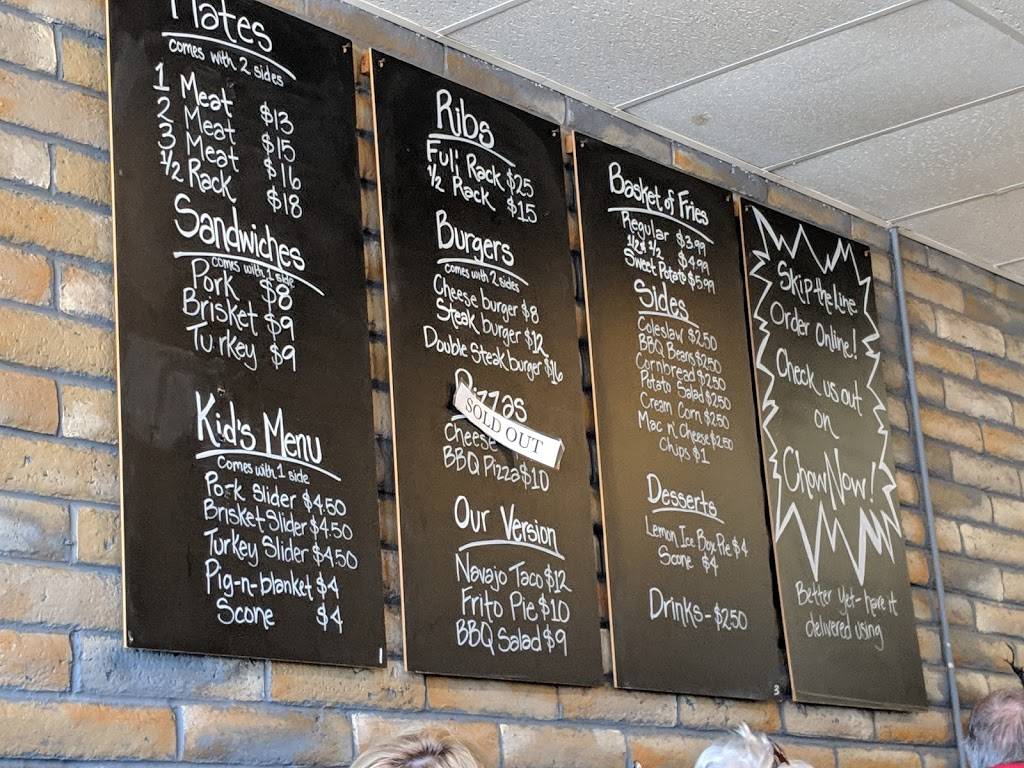 Plates
comes with 2 sides
1 Meat $13
2 Meat $15
3 Meat $16
1/2 Rack $18
Sandwiches
comes with 1 side
Pork $8
Brisket $9
Turkey $9
Kid's Menu
Comes with 1 side
Pork Slider $4.50
Brisket Slider $4.50
Turkey Slider $4.50
Pig-n-blanket $4
Scone $4
1
Ribs
Full Rack $25
1/2 Rack $15
Burgers
comes with 2 sides
Cheese burger $8
Steak burger $12
Double Steak burger $16
Pizzas
SOLD OUT
Cheese
BBQ Pizza $10
Our Version
Navajo Taco $12
Frito Pie $10
BBQ Salad $9
Basket of Fries
Regular $3.99
1/2 & 1/2 $4.99
Sweet Potato $5.99
Sides
Coleslaw $2.50
BBQ Beans $2.50
Cornbread $2.50
Potato Salad $2.50
Cream Corn $2.50
Mac n' Cheese $2.50
Chips $1
Desserts
Lemon Ice Box Pie $4
Scone $4
Drinks - $2.50
3
Skip the Line
Order Online!
Check us out
on
ChowNow!
Better yet - have it
delivered using